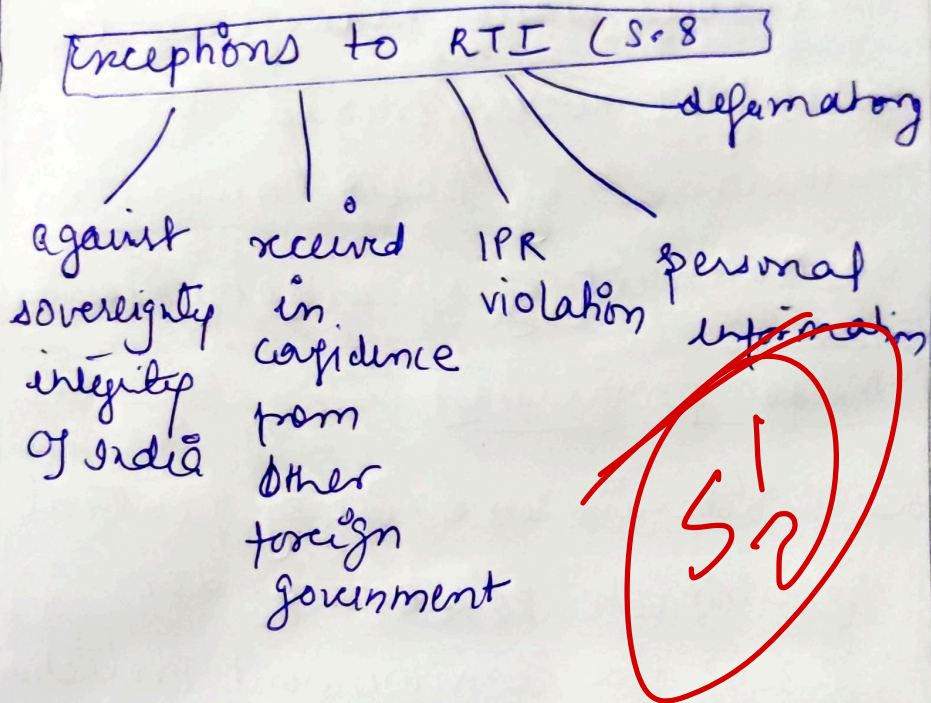 Exceptions to RTI (S.8)
defamatory
against
sovereignty
integrity
Of India
received
in
confidence
from
other
foreign
government
IPR
violation
personal
information